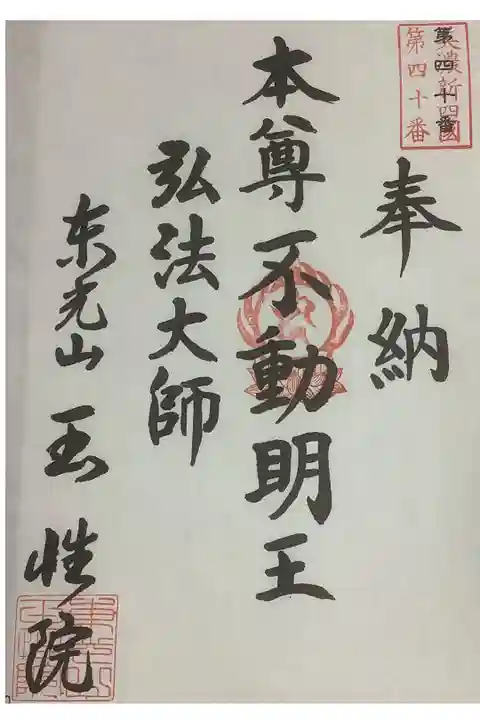 美濃新四国
第四十番
第四十番
奉納
本尊不動明王
弘法大師
东光山 玉性院